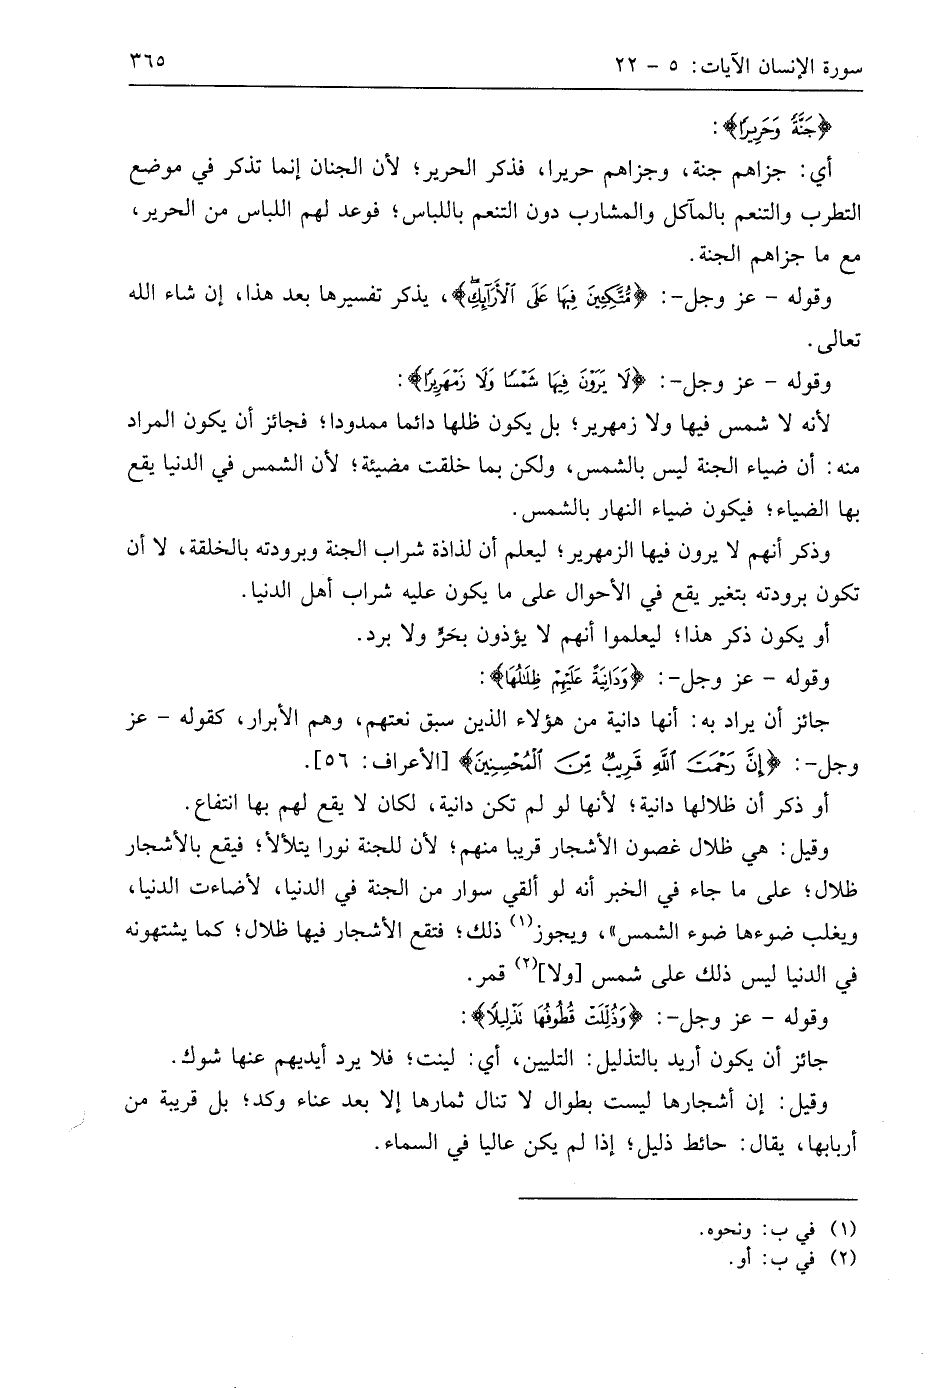 سورة الإنسان الآيات: ٥ - ٢٢
٣٦٥
﴿جَنَّةً وَحَرِيرًا﴾:
أي: جزاهم جنة، وجزاهم حريرا، فذكر الحرير؛ لأن الجنان إنما تذكر في موضع
التطرب والتنعم بالمآكل والمشارب دون التنعم باللباس؛ فوعد لهم اللباس من الحرير،
مع ما جزاهم الجنة.
وقوله - عز وجل-: ﴿مُّتَّكِـِٔينَ فِيهَا عَلَى ٱلۡأَرَآئِكِۖ﴾، يذكر تفسيرها بعد هذا، إن شاء الله
تعالى.
وقوله - عز وجل-: ﴿لَا يَرَوۡنَ فِيهَا شَمۡسٗا وَلَا زَمۡهَرِيرٗا﴾:
لأنه لا شمس فيها ولا زمهرير؛ بل يكون ظلها دائما ممدودا؛ فجائز أن يكون المراد
منه: أن ضياء الجنة ليس بالشمس، ولكن بما خلقت مضيئة؛ لأن الشمس في الدنيا يقع
بها الضياء؛ فيكون ضياء النهار بالشمس.
وذكر أنهم لا يرون فيها الزمهرير؛ ليعلم أن لذاذة شراب الجنة وبرودته بالخلقة، لا أن
تكون برودته بتغير يقع في الأحوال على ما يكون عليه شراب أهل الدنيا.
أو يكون ذكر هذا؛ ليعلموا أنهم لا يؤذون بحَرٍّ ولا برد.
وقوله - عز وجل-: ﴿وَدَانِيَةً عَلَيۡهِمۡ ظِلَٰلُهَا﴾:
جائز أن يراد به: أنها دانية من هؤلاء الذين سبق نعتهم، وهم الأبرار، كقوله - عز
وجل-: ﴿إِنَّ رَحۡمَتَ ٱللَّهِ قَرِيبٞ مِّنَ ٱلۡمُحۡسِنِينَ﴾ [الأعراف: ٥٦].
أو ذكر أن ظلالها دانية؛ لأنها لو لم تكن دانية، لكان لا يقع لهم بها انتفاع.
وقيل: هي ظلال غصون الأشجار قريبا منهم؛ لأن للجنة نورا يتلألأ؛ فيقع بالأشجار
ظلال؛ على ما جاء في الخبر أنه لو ألقي سوار من الجنة في الدنيا، لأضاءت الدنيا،
ويغلب ضوءها ضوء الشمس»، ويجوز(١) ذلك؛ فتقع الأشجار فيها ظلال؛ كما يشتهونه
في الدنيا ليس ذلك على شمس [ولا](٢) قمر.
وقوله - عز وجل-: ﴿وَذُلِّلَتۡ قُطُوفُهَا تَذۡلِيلٗا﴾:
جائز أن يكون أريد بالتذليل: التليين، أي: لينت؛ فلا يرد أيديهم عنها شوك.
وقيل: إن أشجارها ليست بطوال لا تنال ثمارها إلا بعد عناء وكد؛ بل قريبة من
أربابها، يقال: حائط ذليل؛ إذا لم يكن عاليا في السماء.
(١) في ب: ونحوه.
(٢) في ب: أو.